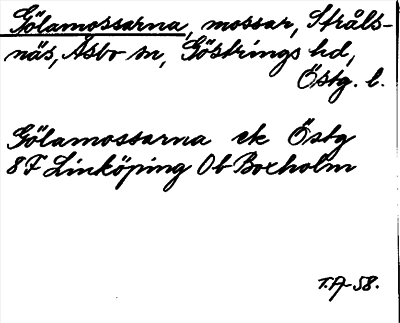 Gölamossarna, mossar, Stråls-
näs, Åsbo sn, Göstrings hd,
Östg. l.
Gölamossarna ek Östg
8F Linköping 0b Boxholm
T.A-58.